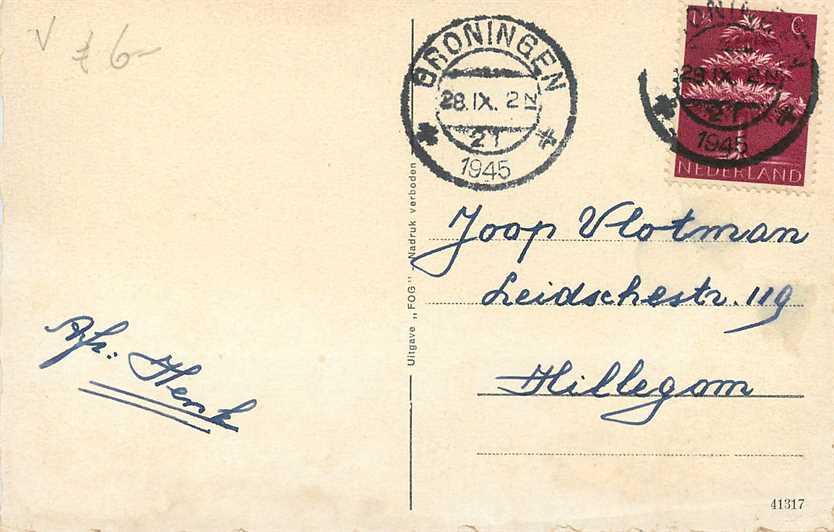 V £ 6-
GRONINGEN
28.IX. 2 N
21
1945
C
28.IX. 2 N
21
1945
NEDERLAND
Joop Vlotman
Leidschestr. 119
Hillegom
Afz: Henk
Uitgave „FOG" - Nadruk verboden
41317